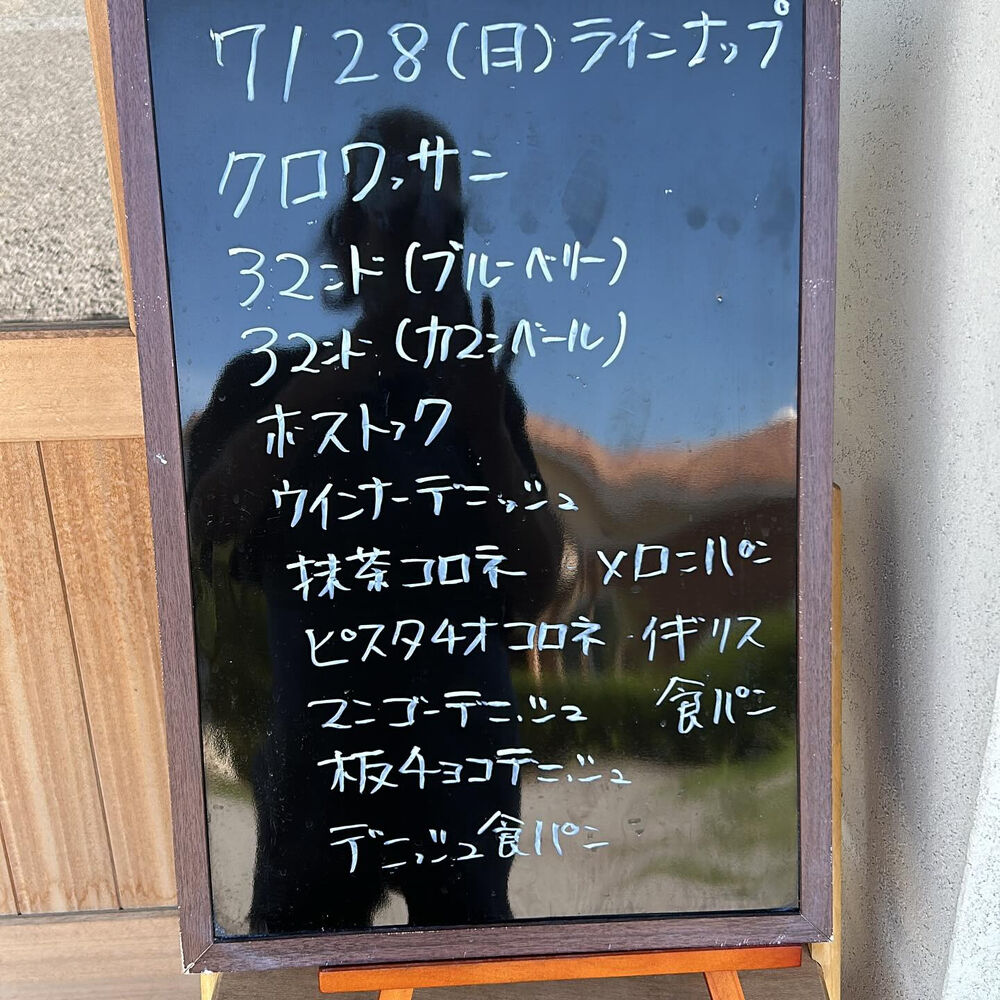 7/28(日)ラインナップ
クロワッサン
アマンド(ブルーベリー)
アマンド(カマンベール)
ボストック
ウインナーデニッシュ
抹茶コロネ
ピスタチオコロネ
マンゴーデニッシュ
板チョコデニッシュ
デニッシュ食パン
メロンパン
イギリス
食パン